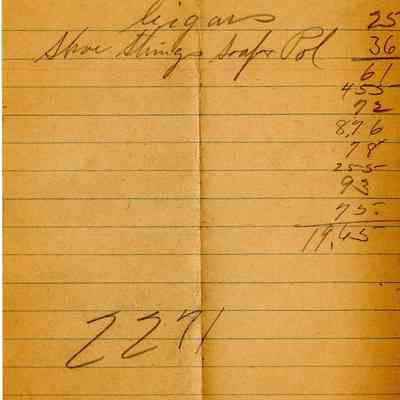 Cigars 25
Shoe Strings Soap & Pol 36
61
455
72
8,76
78
255
93
75
19,45
2271